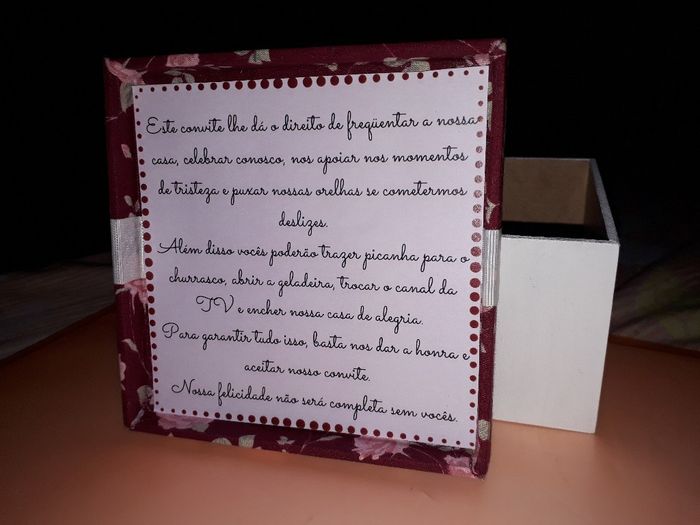 Este convite lhe dá o direito de freqüentar a nossa
casa, celebrar conosco, nos apoiar nos momentos
de tristeza e puxar nossas orelhas se cometermos
deslizes.
Além disso vocês poderão trazer picanha para o
churrasco, abrir a geladeira, trocar o canal da
TV e encher nossa casa de alegria.
Para garantir tudo isso, basta nos dar a honra e
aceitar nosso convite.
Nossa felicidade não será completa sem vocês.